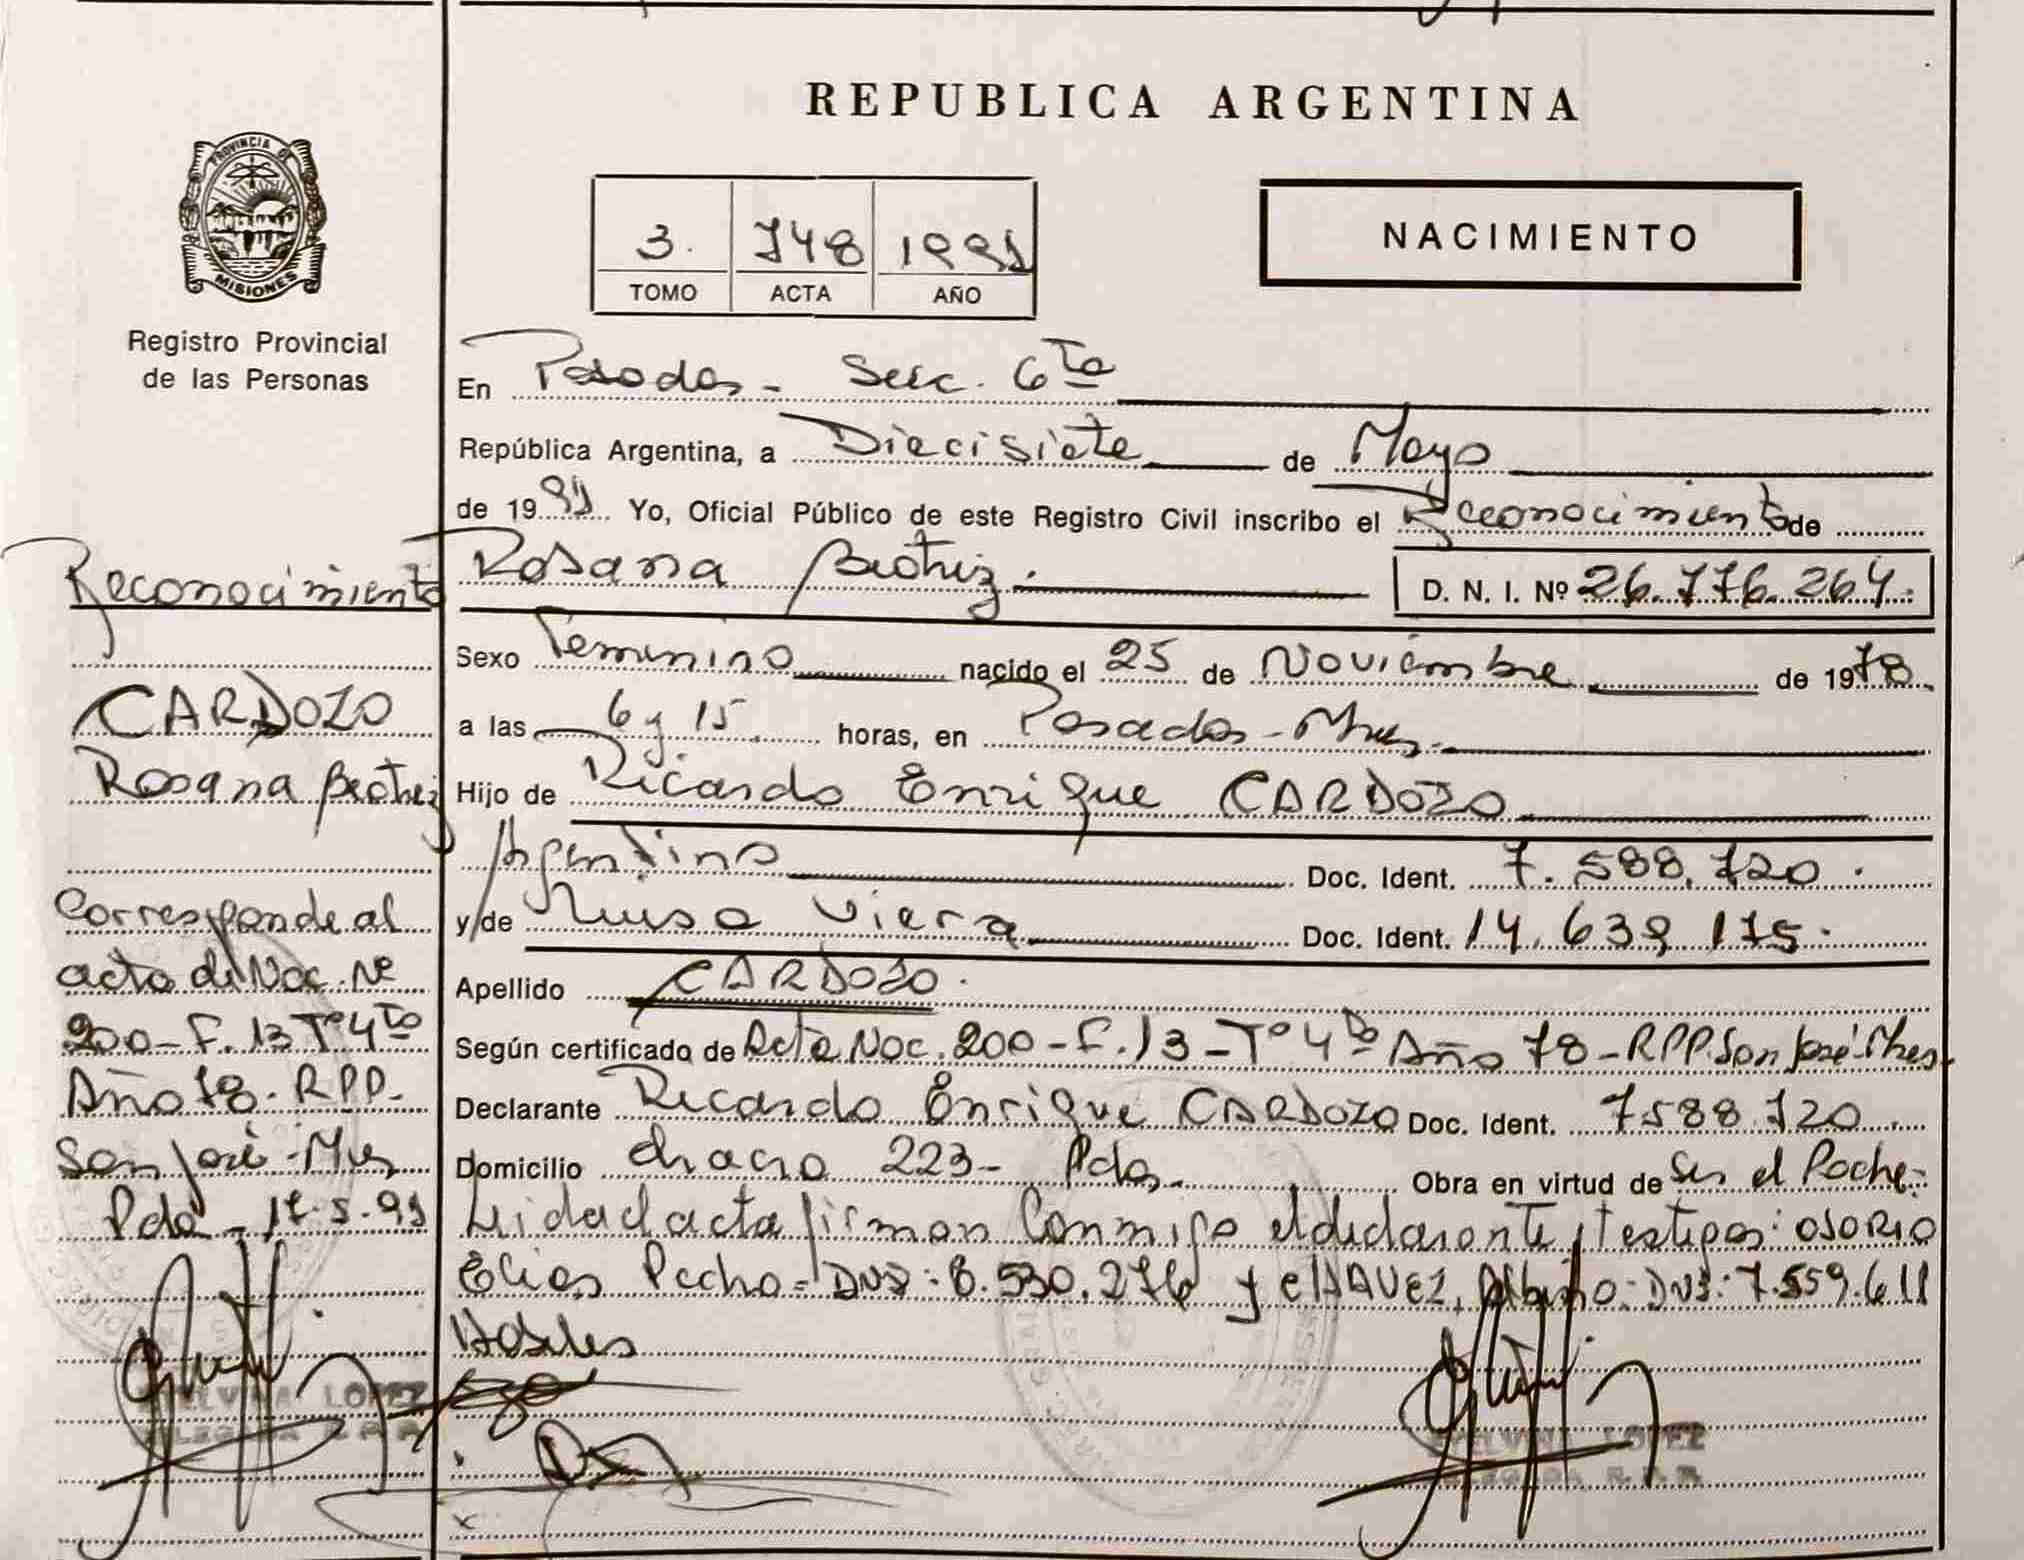 REPUBLICA ARGENTINA
PROVINCIA DE
MISIONES
Registro Provincial
de las Personas
3. 748 1991
TOMO ACTA AÑO
NACIMIENTO
En Posadas - Secc. 6ta
República Argentina, a Diecisiete de Mayo
de 1991 Yo, Oficial Público de este Registro Civil inscribo el Reconocimiento de
Rosana Beatriz. D. N. I. Nº 26.776.264.
Sexo Femenino nacido el 25 de Noviembre de 1978
a las 6 y 15 horas, en Posadas - Mnes.
Hijo de Ricardo Enrique CARDOZO
Argentino Doc. Ident. 7.588.720.
y de Luisa Viera Doc. Ident. 14.639.175.
Apellido CARDOZO.
Según certificado de Acta Nac. 200 - F. 13 - Tº 4to Año 78 - RPP. San José - Mnes.
Declarante Ricardo Enrique CARDOZO Doc. Ident. 7.588.720.
Domicilio chacra 223 - Pdas. Obra en virtud de ser el Padre:
Leida el acta firman conmigo el declarante y testigos: OSORIO
Elias Pedro - DNI: 8.530.276 y CHAVEZ, Albino: DNI: 7.559.611
Reconocimiento
CARDOZO
Rosana Beatriz
Corresponde al
acta de Nac. Nº
200 - F. 13 Tº 4to
Año 78 - RPP.
San José - Mnes
Pdas - 17-5-91
LOPEZ
DELEGADA
LOPEZ
DELEGADA